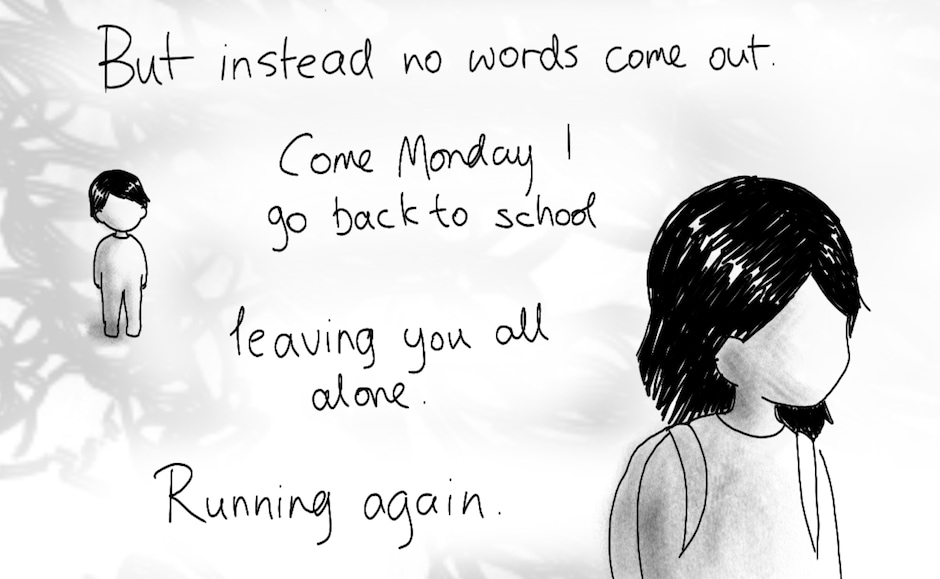 But instead no words come out.
Come Monday I
go back to school
leaving you all
alone.
Running again.